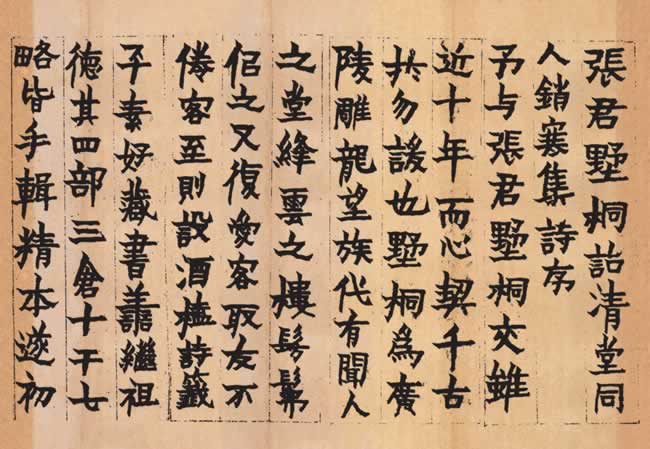 張君墅桐詒清堂同
人銷寒集詩序
予与張君墅桐交雖
近十年而心契千古
共勿諼也墅桐爲廣
陵雕龍望族代有聞人
之堂絳雲之樓髣髴
侣之又復愛客取友不
倦客至則設酒榼詩籤
子素好藏書譱繼祖
徳其四部三倉十干七
略皆手輯精本遂初